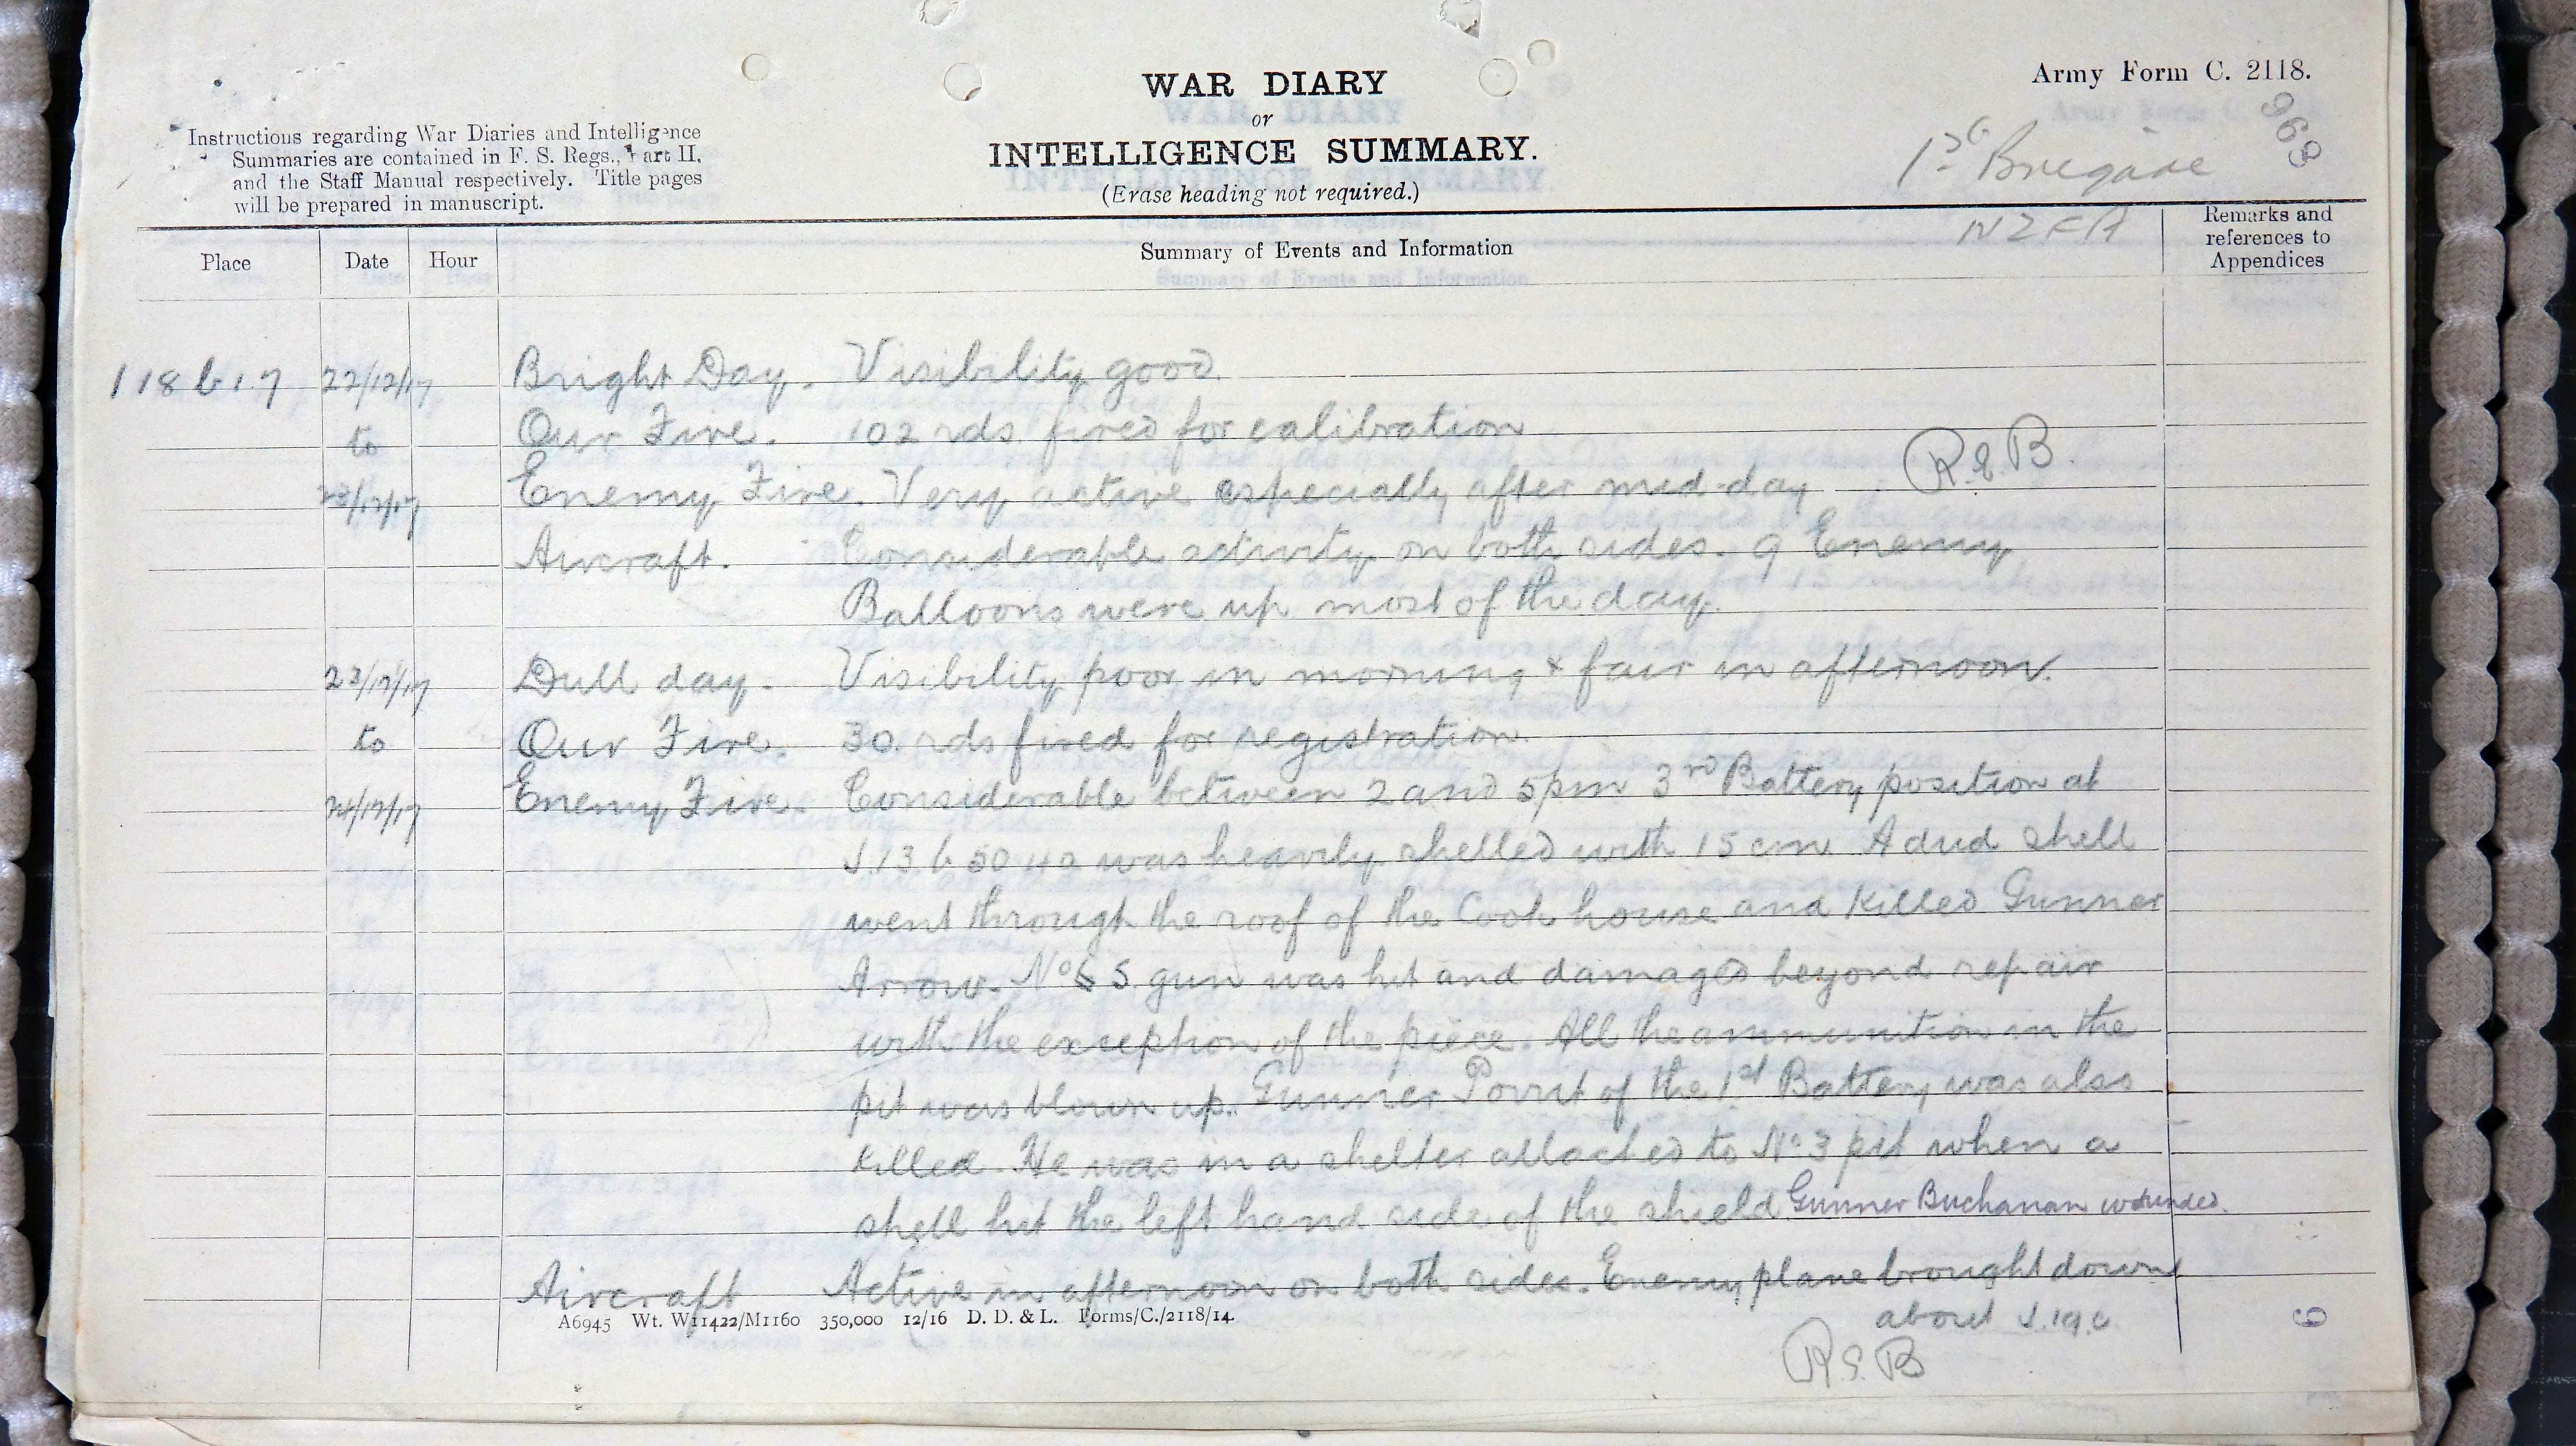 Army Form C. 2118.
WAR DIARY
or
INTELLIGENCE SUMMARY.
(Erase heading not required.)
Instructions regarding War Diaries and Intelligence
Summaries are contained in F. S. Regs., Part II,
and the Staff Manual respectively. Title pages
will be prepared in manuscript.
963
1st Brigade
NZFA
Place
Date
Hour
Summary of Events and Information
Remarks and
references to
Appendices
I 18 b 1.7 22/12/17 Bright Day. Visibility good.
to Our Fire. 102 rds fired for calibration
23/12/17 Enemy Fire. Very active especially after mid-day R.S.B.
Aircraft. Considerable activity on both sides. 9 Enemy
Balloons were up most of the day.
23/12/17 Dull day. Visibility poor in morning & fair in afternoon.
to Our Fire. 30 rds fired for registration.
24/12/17 Enemy Fire. Considerable between 2 and 5pm 3rd Battery position at
J.13 b 50 40 was heavily shelled with 15 cm A dud shell
went through the roof of the Cook house and killed Gunner
Arrow. No 5 gun was hit and damaged beyond repair
with the exception of the piece. All the ammunition in the
pit was blown up. Gunner of the 1st Battery was also
killed. He was in a shelter attached to No 3 pit when a
shell hit the left hand side of the shield Gunner Buchanan wounded.
Aircraft Active in afternoon on both sides. Enemy plane brought down
about J.19.c
R.S.B
A6945 Wt. W11422/M1160 350,000 12/16 D. D. & L. Forms/C./2118/14.
6